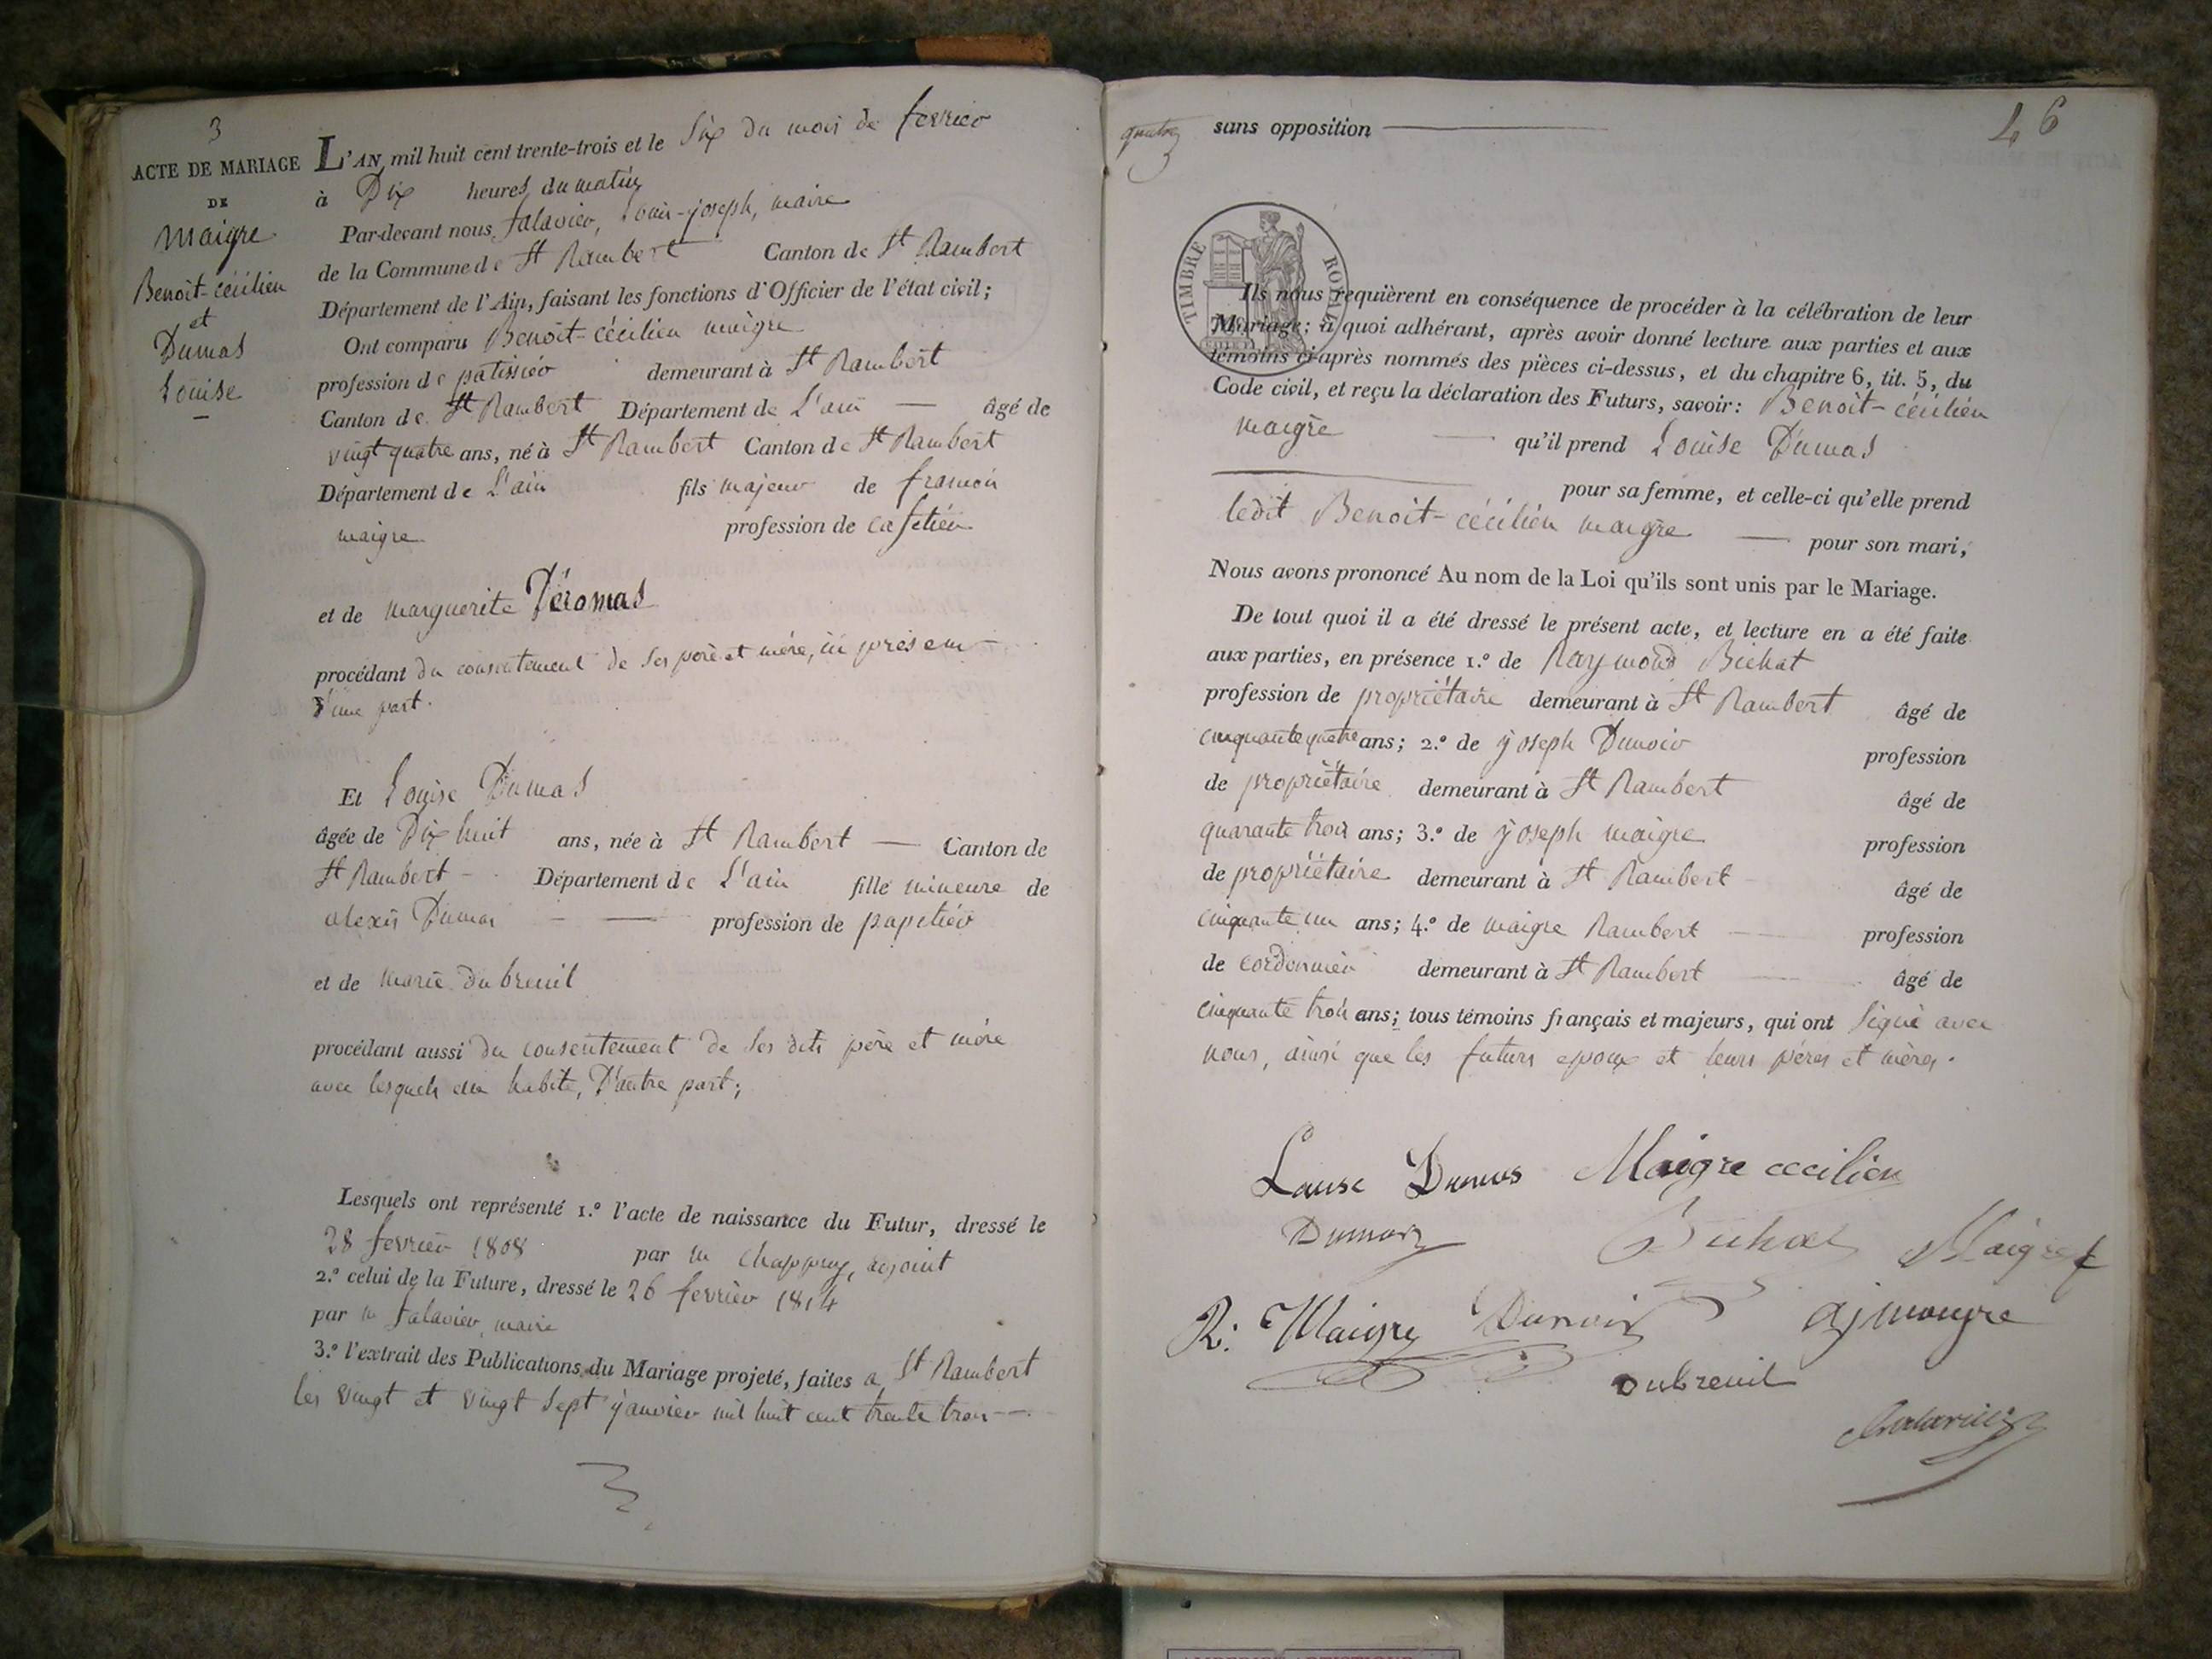 3
ACTE DE MARIAGE
DE
Maigre
Benoit-cécilien
et
Dumas
Louise
L'AN mil huit cent trente-trois et le Six du mois de fevrier
à Dix heures du matin
Par-devant nous falavier, Louis-joseph, maire
de la Commune de St Rambert Canton de St Rambert
Département de l'Ain, faisant les fonctions d'Officier de l'état civil;
Ont comparu Benoit-cécilien maigre
profession de patissier demeurant à St Rambert
Canton de St Rambert Département de L'ain âgé de
vingt quatre ans, né à St Rambert Canton de St Rambert
Département de L'ain fils majeur de francois
maigre profession de cafetier
et de marguerite
procédant du consentement de ses père et mère, ici présens
D'une part.
Et Louise Dumas
âgée de Dix huit ans, née à St Rambert Canton de
St Rambert Département de L'ain fille mineure de
alexis Dumas profession de papetier
et de marie dubreuil
procédant aussi du consentement de ses dits père et mère
avec lesquels elle habite, D'autre part;
Lesquels ont représenté 1.º l'acte de naissance du Futur, dressé le
28 fevrier 1808 par m chappuy, adjoint
2.º celui de la Future, dressé le 26 fevrier 1814
par m falavier, maire
3.º l'extrait des Publications du Mariage projeté, faites a St Rambert
les vingt et vingt sept janvier mil huit cent trente trois
46
sans opposition
TIMBRE ROYAL
Ils nous requièrent en conséquence de procéder à la célébration de leur
Mariage; à quoi adhérant, après avoir donné lecture aux parties et aux
témoins ci-après nommés des pièces ci-dessus, et du chapitre 6, tit. 5, du
Code civil, et reçu la déclaration des Futurs, savoir: Benoit-cécilien
maigre qu'il prend Louise Dumas
pour sa femme, et celle-ci qu'elle prend
ledit Benoit-cécilien maigre pour son mari,
Nous avons prononcé Au nom de la Loi qu'ils sont unis par le Mariage.
De tout quoi il a été dressé le présent acte, et lecture en a été faite
aux parties, en présence 1.º de Raymond Bichat
profession de propriétaire demeurant à St Rambert âgé de
cinquante quatre ans; 2.º de joseph Dunoir profession
de propriétaire demeurant à St Rambert âgé de
quarante trois ans; 3.º de joseph maigre profession
de propriétaire demeurant à St Rambert âgé de
cinquante un ans; 4.º de maigre Rambert profession
de cordonnier demeurant à St Rambert âgé de
cinquante trois ans; tous témoins français et majeurs, qui ont signé avec
nous, ainsi que les futurs epoux et leurs pères et mères.
Louise Dumas Maigre cecilien
Dumas Bichat Maigre f
R: Maigre Dunoir
Dubreuil